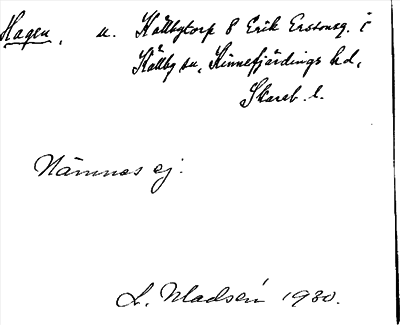 Hagen, u. Källbytorp 8 Erik Ersonsg. i
Källby sn, Kinnefjärdings hd,
Skarab. l.
Nämnes ej.
L. Madsén 1930.